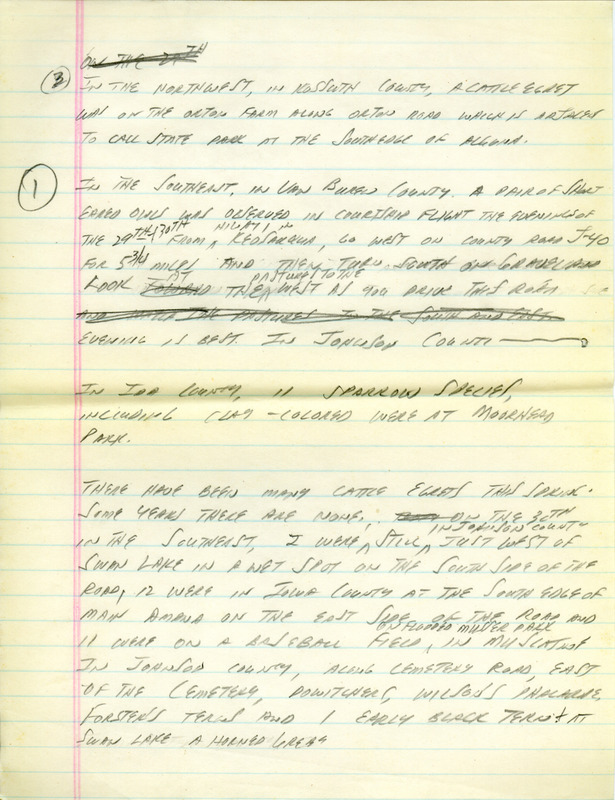 ON THE 29TH
③ IN THE NORTHWEST, IN KOSSUTH COUNTY, A CATTLE EGRET
WAS ON THE ORTON FARM ALONG ORTON ROAD WHICH IS
TO CALL STATE PARK AT THE SOUTH EDGE OF ALGONA.
① IN THE SOUTHEAST, IN VAN BUREN COUNTY. A PAIR OF SHORT
EARED OWLS WAS OBSERVED IN COURTSHIP FLIGHT THE EVENINGS OF
THE 29TH & 30TH FROM KEOSAUQUA, GO WEST ON COUNTY ROAD J-40
FOR 5 3/4 MILES AND THEN TURN SOUTH ON GRAVEL AND
LOOK AT THE PASTURE TO THE WEST AS YOU DRIVE THIS ROAD
AND WATCH THE PASTURES IN THE SOUTH AND EAST
EVENING IS BEST. IN JOHNSON COUNTY
IN IDA COUNTY, 11 SPARROW SPECIES,
INCLUDING CLAY-COLORED WERE AT MOORHEAD
PARK.
THERE HAVE BEEN MANY CATTLE EGRETS THIS SPRING.
SOME YEARS THERE ARE NONE. ON THE 30TH
IN THE SOUTHEAST, 2 WERE STILL IN JOHNSON COUNTY JUST WEST OF
SWAN LAKE IN A WET SPOT ON THE SOUTH SIDE OF THE
ROAD, 12 WERE IN IOWA COUNTY AT THE SOUTH EDGE OF
MAIN AMANA ON THE EAST SIDE OF THE ROAD AND
11 WERE ON A BASEBALL FIELD, IN MUSCATINE
IN JOHNSON COUNTY, ALONG CEMETERY ROAD, EAST
OF THE CEMETERY, DOWITCHERS, WILSON'S PHALAROPE,
FORSTER'S TERNS AND 1 EARLY BLACK TERN & AT
SWAN LAKE A HORNED GREBE